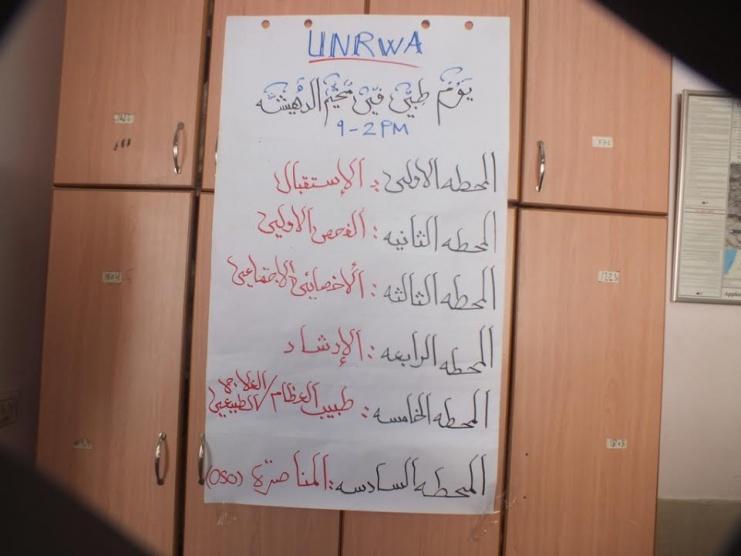 UNRWA
يوم طبي في مخيم الدهيشه
9-2PM
المحطه الاولى: الإستقبال
المحطه الثانيه: الفحص الاولي
المحطه الثالثه: الأخصائي الاجتماعي
المحطه الرابعه: الإرشاد
المحطه الخامسه: طبيب العظام/العلاج الطبيعي
المحطه السادسه: المناصرة (OSO)